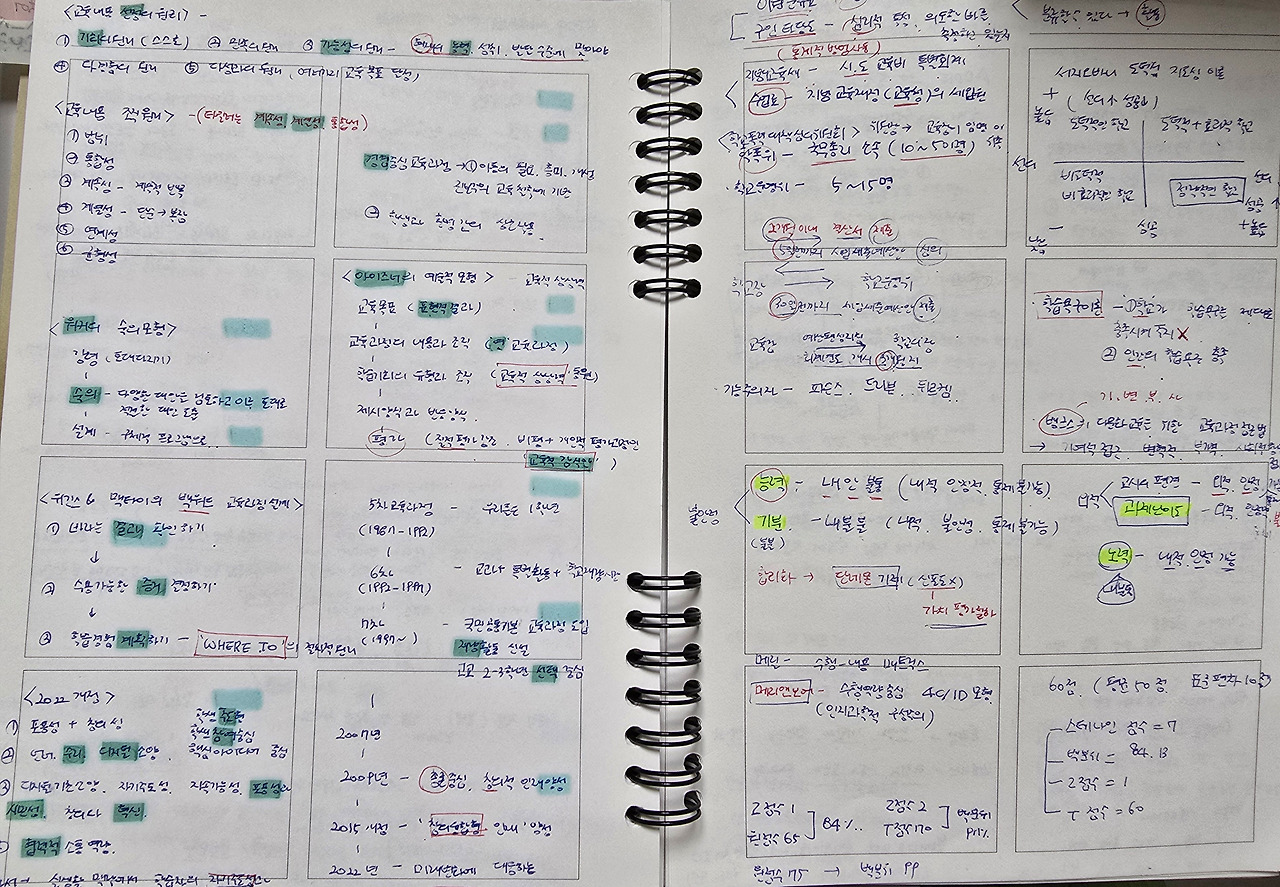 <교육내용 선정의 원리> -
① 기회의 원리 (스스로) ② 만족의 원리 ③ 가능성의 원리 - 현재의 능력. 성취. 발달 수준에 맞아야
④ 다경험의 원리 ⑤ 다성과의 원리, 여러가지 교육 목표 달성
<교육내용 조직원리> - (타일러는 계속성 계열성 통합성)
① 범위
② 통합성
③ 계속성 - 계속적 반복
④ 계열성 - 단순→복잡
⑤ 연계성
⑥ 균형성
경험중심 교육과정 → ① 아동의 필요, 흥미, 개성
진보주의 교육철학에 기반
② 학생과 환경 간의 상호작용
<워커의 숙의모형>
강령 (토대다지기)
숙의 - 다양한 대안을 검토하고 이후 토대로
적절한 대안 도출
설계 - 구체적 프로그램으로
<아이즈너의 예술적 모형> - 교육적 상상력
교육목표 (표현적 결과)
교육과정의 내용과 조직 (영 교육과정)
학습기회의 유형과 조직 (교육적 상상력 동원)
제시양식과 반응양식
평가 (진정평가 강조. 비평 + 개인적 평가과정인
교육적 감식안)
<위긴스 & 맥타이의 백워드 교육과정 설계>
① 바라는 결과 확인하기
↓
② 수용가능한 증거 결정하기
↓
③ 학습경험 계획하기 - 'WHERE TO'의 절차적 원리
5차 교육과정 - 우리들은 1학년
(1987~1992)
6차 - 교과와 특별활동 + 학교재량시간
(1992~1997)
7차 - 국민공통기본 교육과정 도입
(1997~) 재량활동 신설
고교 2-3학년 선택 중심
<2022 개정>
① 포용성 + 창의성
② 언어. 수리. 디지털 소양
학생 주도형
학생 참여중심
핵심아이디어 중심
③ 디지털기초소양. 자기주도성. 지속가능성. 포용성과
시민성. 창의와 혁신.
협력적 소통 역량.
2007년
2009년 - 진로중심, 창의적 인재양성
2015 개정 - '창의융합형 인재' 양성
2022년 - 미래변화에 대응하는
구인 타당도 - 심리적 특성. 의도한 바를
지방교육세 - 시.도 교육비 특별회계
수입은 - 지방교육재정(교육청)의 세입원
학폭위 - 국무총리 소속 (10~50명)
· 학교운영위 - 5~15명
2개월 이내 결산서 제출
5일전까지 세입세출예산안 심의
학교장 학교운영위
30일전까지 세입세출예산안 제출
교육감 예산편성지침 학교의장
회계연도 개시
기능주의자 - 파슨스. 드리븐. 뒤르켐.
불안정
능력 - 내 안 불통 (내적 안정적. 통제불가능)
기분 - 내불불 (내적. 불안정. 통제불가능)
합리화 → 단레몬 기제 (신포도 X)
가치 평가절하
메릴 - 수행-내용 매트릭스
메리엔보어 - 수행역량중심 4C/ID 모형
(인지과학적 구성주의)
Z점수 1
원점수 65
84%
Z점수 2
T점수 70
백분위
원점수 75 → 백분위 99
분류할 수 있다 → 활동
서지오바니 도덕적 지도성 이론
+ (선의↑ 성공↓)
높음 도덕적인 학교 도덕적 + 효과적 학교
선의
비도덕적
비효과적인 학교
정략적인 학교
성공
+ 높음
- 낮음
학습욕구이론 - ① 학교가 학습욕구를 제대로
충족시켜 주지 X
② 인간의 학습욕구 충족
기. 변. 부. 사
뱅크스의 다문화교육을 위한 교육과정 접근법
→ 기여적 접근. 변혁적. 부가적.
외적
교사의 편견 - 외적. 안정.
과제난이도 - 외적.
노력 - 내적. 안정 가능
60점. (평균 50점. 표준편차 10점)
스테나인 점수 = 7
백분위 = 84.13
Z점수 = 1
T점수 = 60